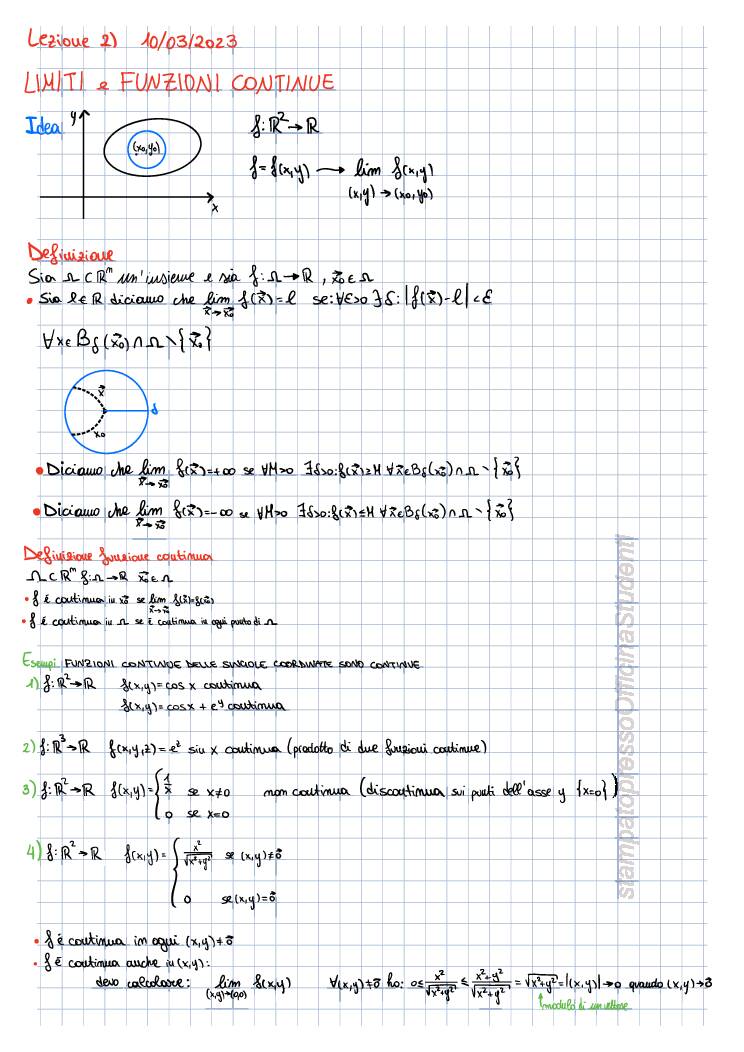 Lezione 2) 10/03/2023
LIMITI e FUNZIONI CONTINUE
Idea y (x₀,y₀) x
f: ℝ² → ℝ
f = f(x,y) ⟶ lim f(x,y)
(x,y) → (x₀,y₀)
Definizione
Sia Ω ⊂ ℝᵐ un'insieme e sia f: Ω → ℝ, x⃗₀ ∈ Ω
• Sia l ∈ ℝ diciamo che lim f(x⃗) = l se: ∀ε>0 ∃ δ: |f(x⃗) - l| < ε
x⃗ → x⃗₀
∀x ∈ Bδ(x⃗₀) ∩ Ω \ {x⃗₀}
x⃗ δ
x₀
• Diciamo che lim f(x⃗) = +∞ se ∀M>0 ∃δ>0: f(x⃗) ≥ M ∀x⃗ ∈ Bδ(x⃗₀) ∩ Ω \ {x⃗₀}
x⃗ → x⃗₀
• Diciamo che lim f(x⃗) = -∞ se ∀M>0 ∃δ>0: f(x⃗) ≤ M ∀x⃗ ∈ Bδ(x⃗₀) ∩ Ω \ {x⃗₀}
x⃗ → x⃗₀
Definizione funzione continua
Ω ⊂ ℝᵐ f: Ω → ℝ x⃗₀ ∈ Ω
• f é continua in x⃗₀ se lim f(x⃗) = f(x⃗₀)
x⃗ → x⃗₀
• f é continua in Ω se é continua in ogni punto di Ω
Esempi FUNZIONI CONTINUE DELLE SINGOLE COORDINATE SONO CONTINUE
1) f: ℝ² → ℝ f(x,y) = cos x continua
f(x,y) = cos x + eʸ continua
2) f: ℝ³ → ℝ f(x,y,z) = eᶻ sin x continua (prodotto di due funzioni continue)
3) f: ℝ² → ℝ f(x,y) = { 1/x se x≠0 non continua (discontinua sui punti dell'asse y {x=0})
0 se x=0
4) f: ℝ² → ℝ f(x,y) = { x²/√(x²+y²) se (x,y) ≠ 0⃗
0 se (x,y) = 0⃗
• f é continua in ogni (x,y) ≠ 0⃗
• f é continua anche in (x,y):
devo calcolare: lim f(x,y) ∀(x,y) ≠ 0⃗ ho: 0 ≤ x²/√(x²+y²) ≤ (x²+y²)/√(x²+y²) = √(x²+y²) = |(x,y)| → 0 quando (x,y) → 0⃗
(x,y)→(0,0)
modulo di un vettore
stampatopressoOfficinaStudenti